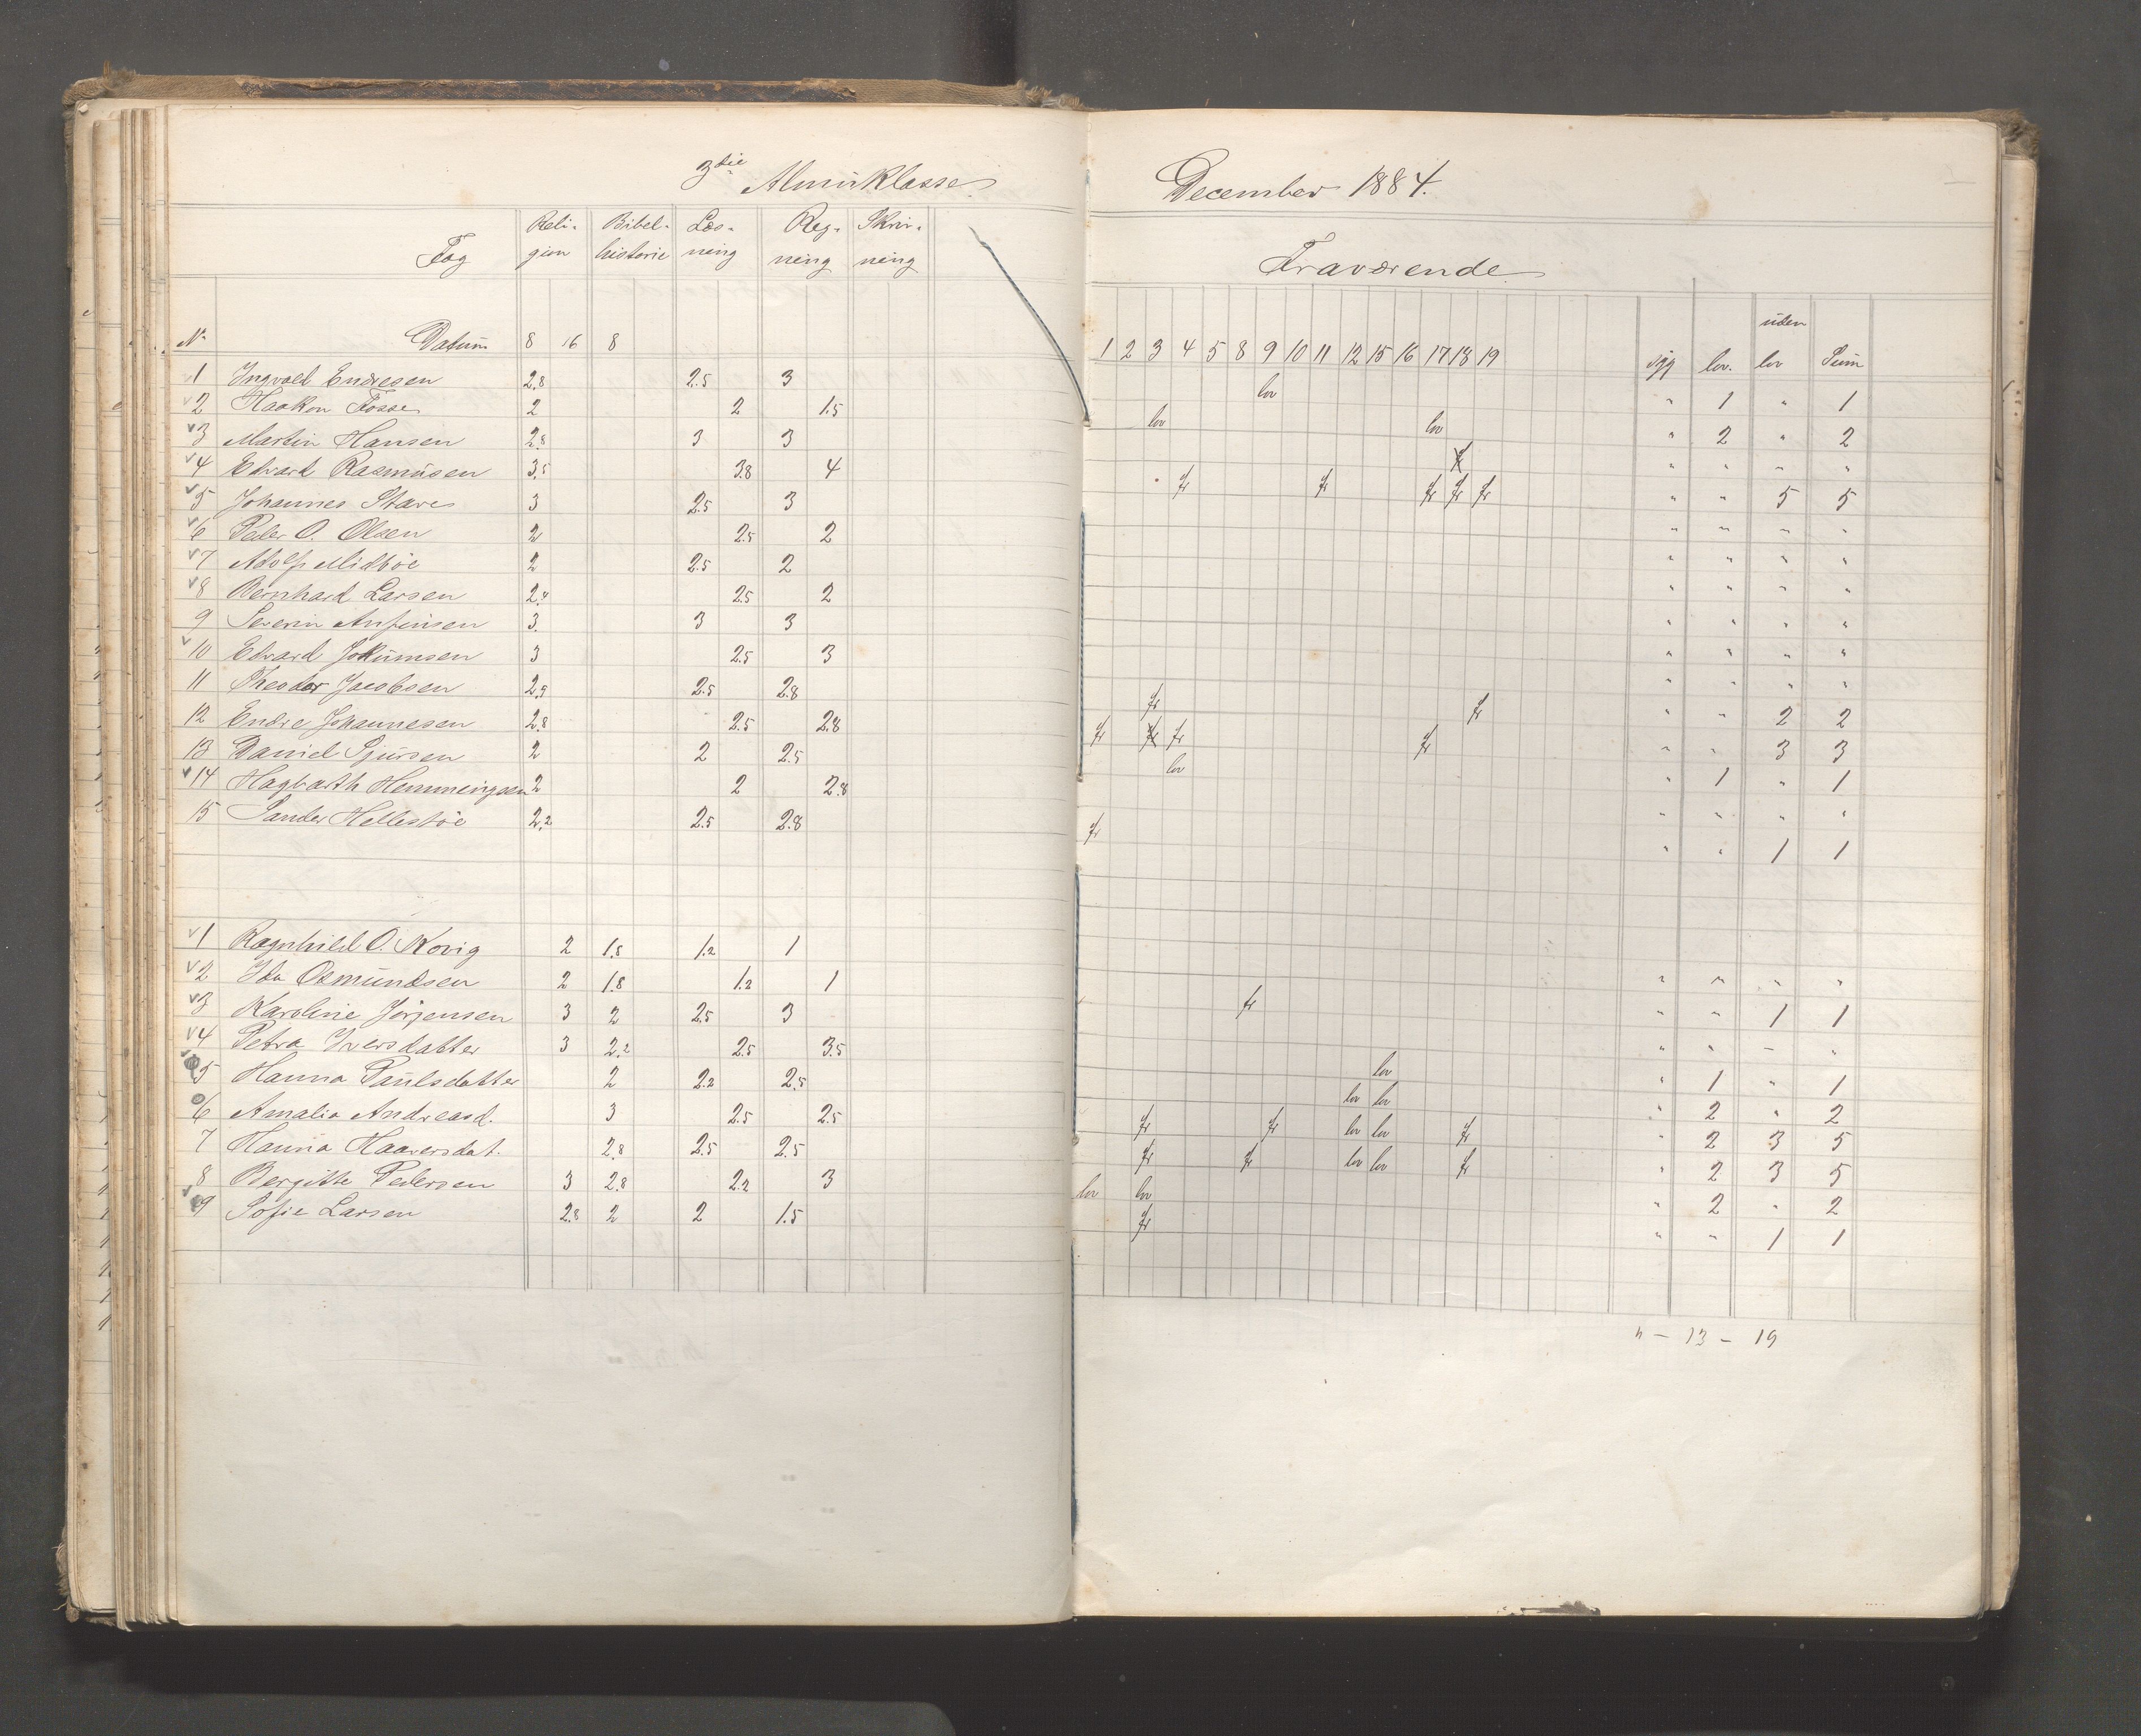 3die Almuklasse
Fag Reli- Bibel- Læs- Reg- Skriv-
gion historie ning ning ning
No Datum 8 16 8
1 Ingvald Endresen 2.8 2.5 3
2 Haakon Fosse 2 2 1.5
3 Martin Hansen 2.8 3 3
4 Edvard Rasmusen 3.5 3.8 4
5 Johannes Stave 3 2.5 3
6 Peder O. Olsen 2 2.5 2
7 Adolf Midbøe 2 2.5 2
8 Bernhard Larsen 2.4 2.5 2
9 Severin Anfinsen 3. 3 3
10 Edvard Jokumsen 3 2.5 3
11 Theodor Jacobsen 2.5 2.8
12 Endre Johannesen 2.8 2.5 2.8
13 Daniel Sjursen 2 2 2.5
14 Hagbarth Hemmingsen 2 2 2.8
15 Sander Hellestøe 2.2 2.5 2.8
1 Ragnhild O. Kovig 2 1.8 1.2 1
2 Ida Osmundsen 2 1.8 1.2 1
3 Karoline Jørgensen 3 2 2.5 3
4 Petra Iversdatter 3 2.2 2.5 3.5
5 Hanna Paulsdatter 2 2.2 2.5
6 Amalia Andreasd. 3 2.5 2.5
7 Hanna Haaversdat. 2.8 2.5 2.5
8 Bergitte Pedersen 3 2.8 2.2 3
9 Sofie Larsen 2.8 2 2 1.5
December 1884.
Fraværende
1 2 3 4 5 8 9 10 11 12 15 16 17 18 19 syg lov. uden lov Sum
lov " 1 " 1
lov lov " 2 " 2
" " " "
fr fr fr fr fr " " 5 5
" " " "
" " " "
" " " "
" " " "
" " " "
" " " "
fr fr " " 2 2
fr fr fr fr " " 3 3
lov " 1 " 1
" " " "
fr " " 1 1
" " " "
fr " " 1 1
" " – "
lov " 1 " 1
lov lov " 2 " 2
fr fr lov lov fr " 2 3 5
fr fr lov lov fr " 2 3 5
lov lov " 2 " 2
fr " " 1 1
" – 13 – 19